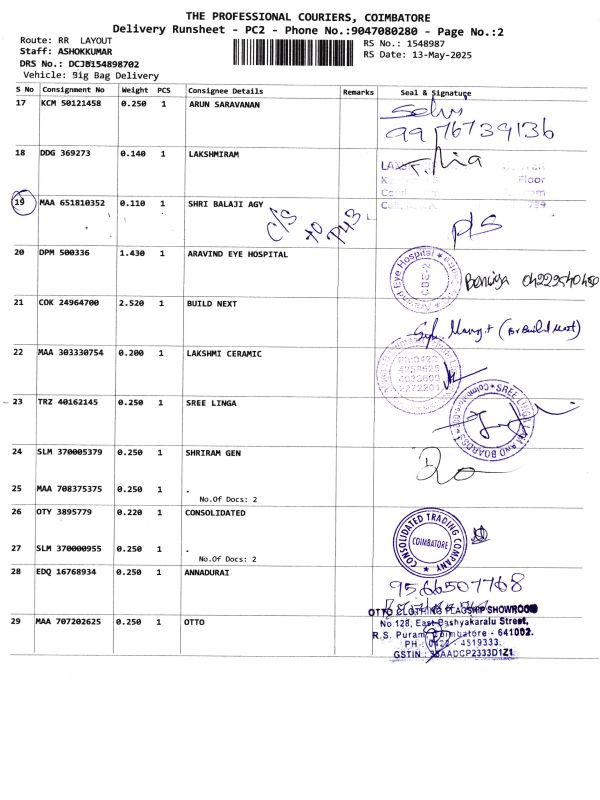 THE PROFESSIONAL COURIERS, COIMBATORE
Delivery Runsheet - PC2 - Phone No.:9047080280 - Page No.:2
Route: RR LAYOUT
Staff: ASHOKKUMAR
DRS No.: DCJB154898702
Vehicle: Big Bag Delivery
RS No.: 1548987
RS Date: 13-May-2025
S No Consignment No Weight PCS Consignee Details Remarks Seal & Signature
17 KCM 50121458 0.250 1 ARUN SARAVANAN
Selvi
9976739136
18 DDG 369273 0.140 1 LAKSHMIRAM
Floor
19 MAA 651810352 0.110 1 SHRI BALAJI AGY
C/S
P43
P/S
20 DPM 500336 1.430 1 ARAVIND EYE HOSPITAL
Eye Hospital
CBE-2
21 CDK 24964700 2.520 1 BUILD NEXT
22 MAA 303330754 0.200 1 LAKSHMI CERAMIC
PH:0422
23 TRZ 40162145 0.250 1 SREE LINGA
SREE LINGA
AND BOARDS
24 SLM 370005379 0.250 1 SHRIRAM GEN
25 MAA 708375375 0.250 1 .
No.Of Docs: 2
26 OTY 3895779 0.220 1 CONSOLIDATED
CONSOLIDATED TRADING COMPANY
COIMBATORE
27 SLM 370000955 0.250 1 .
No.Of Docs: 2
28 EDQ 16768934 0.250 1 ANNADURAI
9566507768
29 MAA 707202625 0.250 1 OTTO
OTTO CLOTHING FLAGSHIP SHOWROOM
No.128, East Bashyakaralu Street,
R.S. Puram, Coimbatore - 641002.
PH : 0422 - 4519333
GSTIN : 33AADCP2333D1Z1